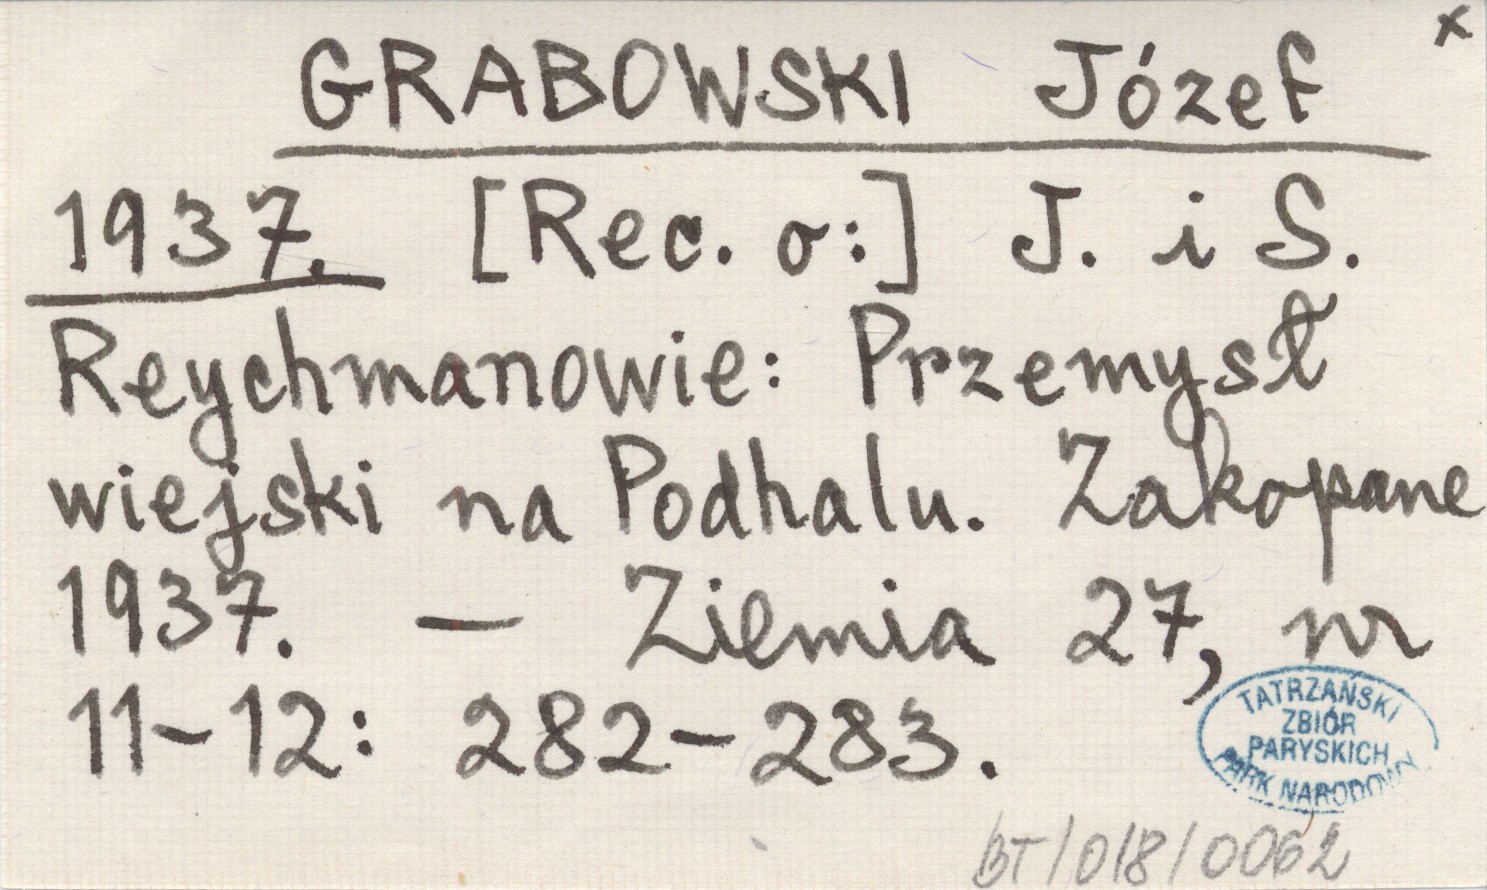 x
GRABOWSKI Józef
1937. [Rec. o:] J. i S.
Reychmanowie: Przemysł
wiejski na Podhalu. Zakopane
1937. — Ziemia 27, nr
11-12: 282-283.
TATRZAŃSKI
ZBIÓR
PARYSKICH
PARK NARODOWY
BT/018/0062